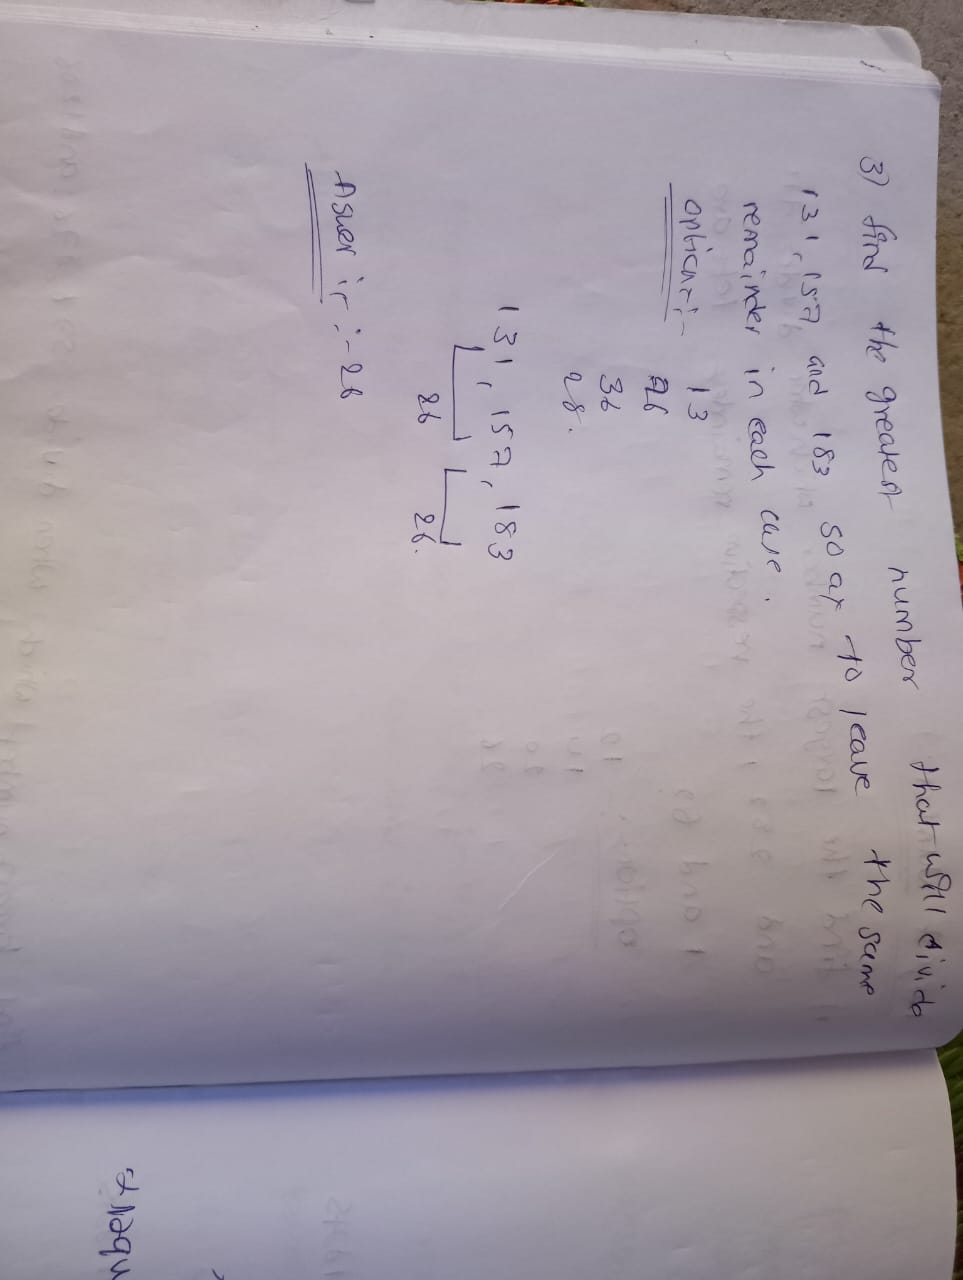 3) find the greatest number that will divide
131, 157 and 183 so as to leave the same
remainder in each case.
options:- 13
26
36
28.
131, 157, 183
26 26.
Asuer is :- 26